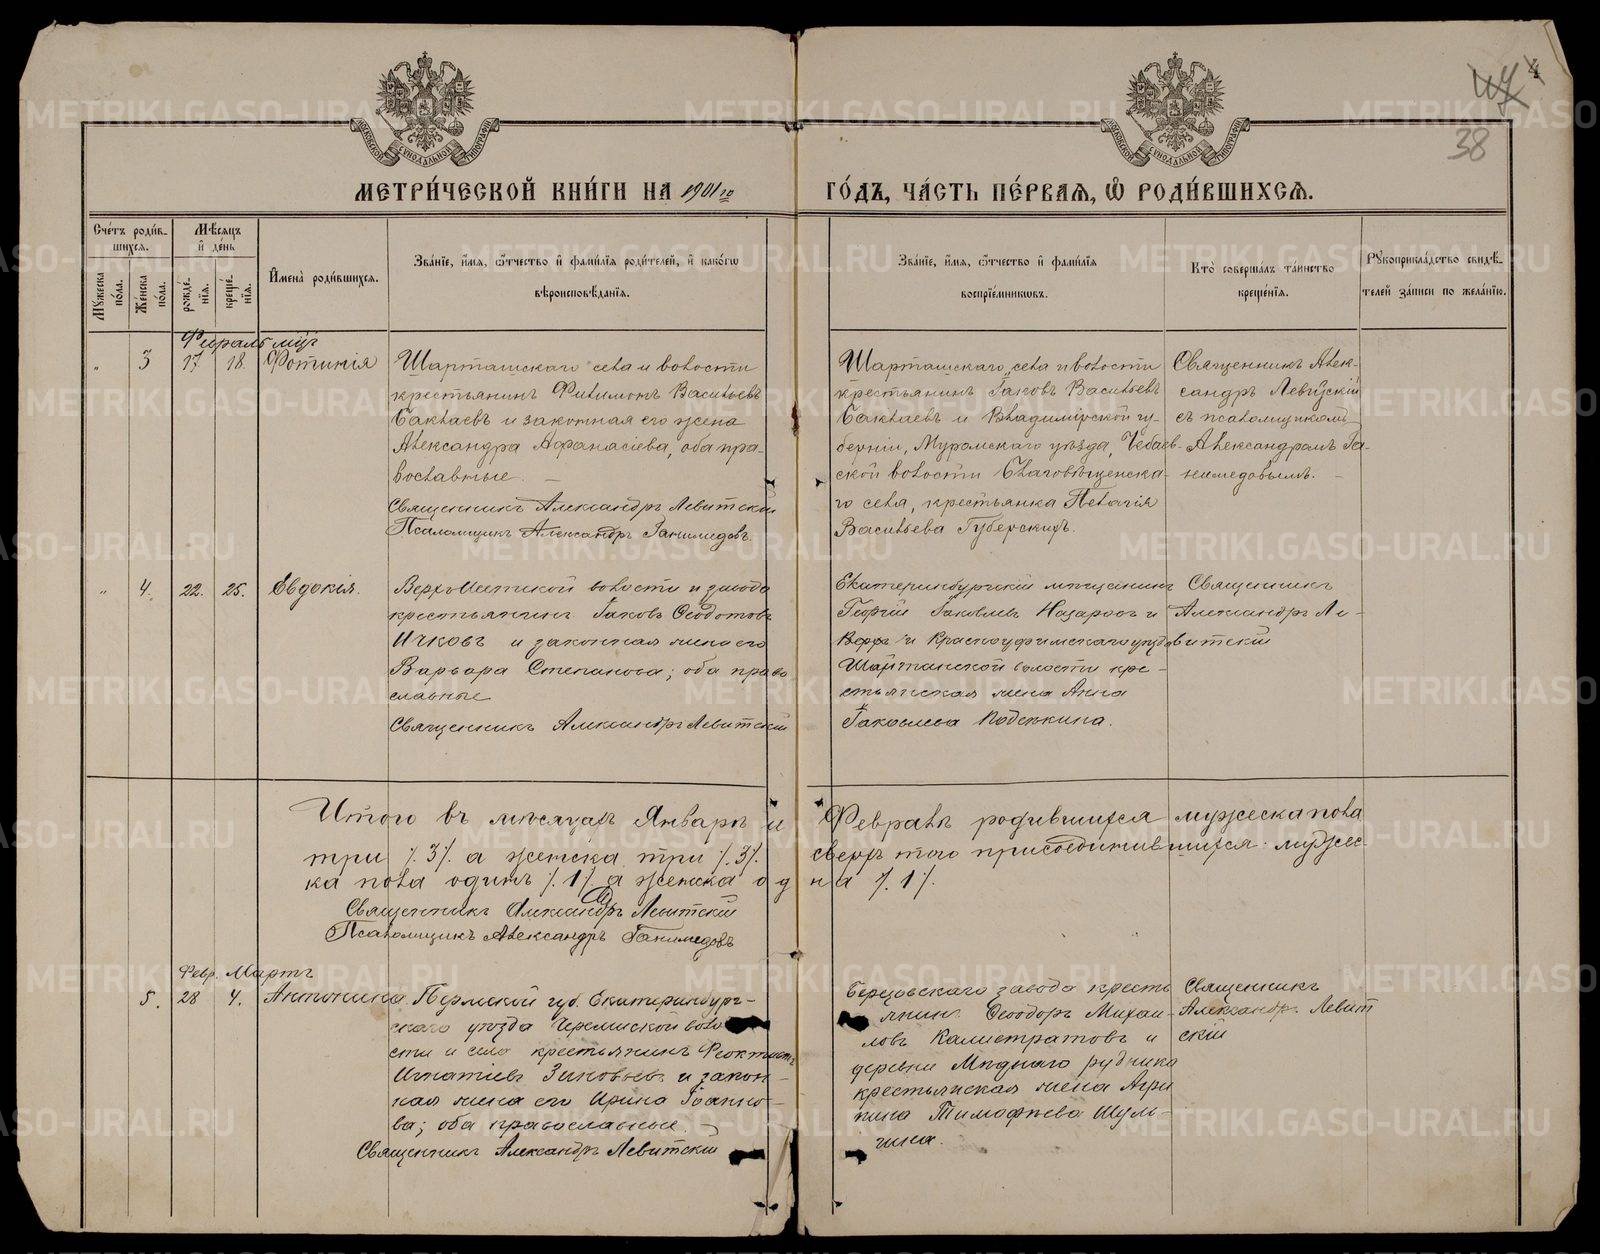 МЕТРИ́ЧЕСКОЙ КНИ́ГИ НА 1901 го ГО́ДЪ, ЧА́СТЬ ПЕ́РВАЯ, Ѿ РОДИ́ВШИХСЯ.
38
МОСКОВСКОЙ СѴНОДАЛЬНОЙ ТИПОГРАФІИ
МОСКОВСКОЙ СѴНОДАЛЬНОЙ ТИПОГРАФІИ
Сче́тъ роди́в-
шихся.
Му́жеска по́ла.
Же́нска по́ла.
Мѣ́сяцъ
и҆ де́нь
рожде́-
нїя.
креще́-
нїя.
И҆мена̀ роди́вшихся.
Зва́нїе, и҆́мя, ѻ҆́тчество и҆ фами́лїя роди́телей, и҆ како́гѡ
вѣроисповѣ́данїя.
Зва́нїе, и҆́мя, ѻ҆́тчество и҆ фами́лїя
воспрїе́мникѡвъ.
Кто̀ соверша́лъ та́инство
креще́нїя.
Рꙋкоприкла́дство свидѣ́-
телей за́писи по жела́нїю.
„ 3 17 18 Фотинія
Шарташскаго села и волости
крестьянинъ Филимонъ Васильевъ
Баклаевъ и законная его жена
Александра Афанасіева, оба пра-
вославные. —
Священникъ Александръ Левитскій
Псаломщикъ Александръ Ганимедовъ.
Шарташскаго села и волости
крестьянинъ Іаковъ Васильевъ
Баклаевъ и Владимірской гу-
берніи, Муромскаго уѣзда, Чебаев-
ской волости Благовѣщенска-
го села, крестьянка Пелагія
Васильева
Священникъ Алек-
сандръ Левитскій
съ псаломщикомъ
Александромъ Га-
нимедовымъ. —
„ 4. 22. 25. Евдокія.
Верхъ-Исетской волости и завода
крестьянинъ Іаковъ Ѳеодотовъ
Ичковъ и законная жена его
Варвара Степанова; оба право
славные
Священникъ Александръ Левитскій
Екатеринбургскій мѣщанинъ
Георгій Іаковлевъ Назаровъ и
и Красноуфимскаго уѣзда
Шайтанской волости кре-
стьянская жена Анна
Іаковлева
Священникъ
Александръ Ле-
витскій
Итого въ мѣсяцахъ Январѣ и Февралѣ родившихся мужеска пола
три /. 3 /. а женска три /. 3 /. сверхъ того присоединившихся мужес-
ка пола одинъ /. 1 /. а женска одна /. 1 /.
Священникъ Александръ Левитскій
Псаломщикъ Александръ Ганимедовъ
Февр. Мартъ
5. 28 4. Антонина
Пермской губ. Екатеринбург-
скаго уѣзда Черемисской воло
сти и села крестьянинъ Феоктистъ
Игнатіевъ Зиновьевъ и закон-
ная жена его Ирина Іоанно-
ва; оба православные.
Священникъ Александръ Левитскій
Березовскаго завода кресть
янинъ Ѳеодоръ Михаи-
ловъ Калистратовъ и
деревни Мѣднаго рудника
крестьянская жена Агри
пина Тимофѣева Шуль-
гина.
Священникъ
Александръ Левит
скій
METRIKI.GASO-URAL.RU